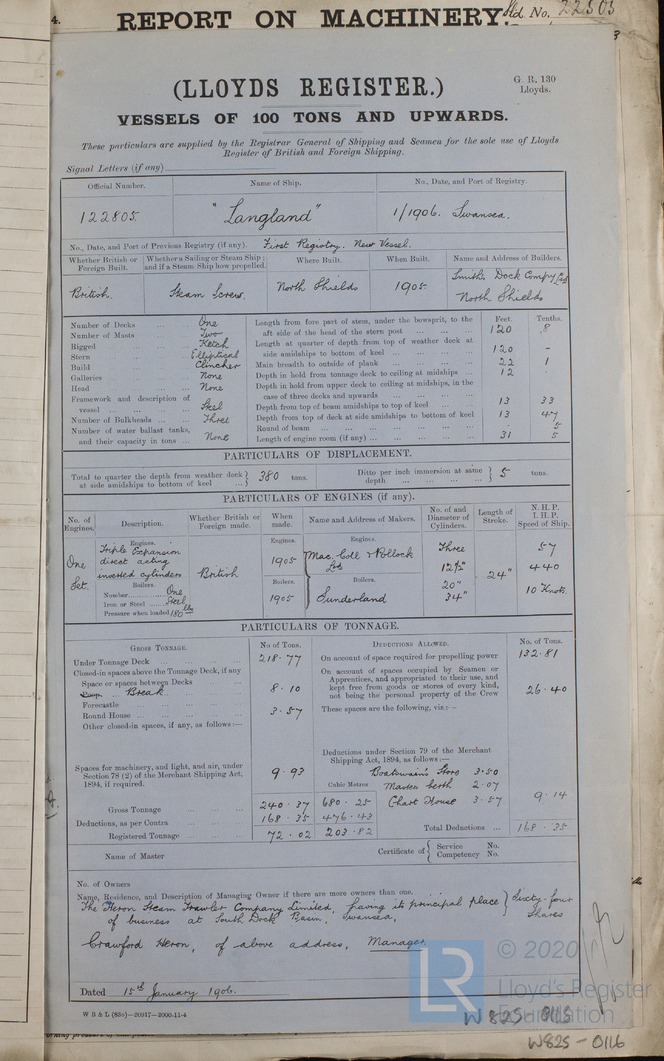 4.
REPORT ON MACHINERY.
Std. No. 22503
(LLOYDS REGISTER.)
G. R. 130
Lloyds.
VESSELS OF 100 TONS AND UPWARDS.
These particulars are supplied by the Registrar General of Shipping and Seamen for the sole use of Lloyds
Register of British and Foreign Shipping.
Signal Letters (if any)
Official Number. Name of Ship. No., Date, and Port of Registry.
122805. "Langland" 1/1906. Swansea.
No., Date, and Port of Previous Registry (if any). First Registry. New Vessel.
Whether British or Foreign Built. Whether a Sailing or Steam Ship; and if a Steam Ship how propelled. Where Built. When Built. Name and Address of Builders.
British. Steam Screw. North Shields 1905 Smith's Dock Compy Ltd
North Shields
Number of Decks One
Number of Masts Two
Rigged Ketch
Stern Elliptical
Build Clincher
Galleries None
Head None
Framework and description of
vessel Steel
Number of Bulkheads Three
Number of water ballast tanks,
and their capacity in tons None
Feet. Tenths.
Length from fore part of stem, under the bowsprit, to the
aft side of the head of the stern post 120 .8
Length at quarter of depth from top of weather deck at
side amidships to bottom of keel 120 -
Main breadth to outside of plank 22 1
Depth in hold from tonnage deck to ceiling at midships 12 .
Depth in hold from upper deck to ceiling at midships, in the
case of three decks and upwards
Depth from top of beam amidships to top of keel 13 33
Depth from top of deck at side amidships to bottom of keel 13 47
Round of beam . 5
Length of engine room (if any) 31 5
PARTICULARS OF DISPLACEMENT.
Total to quarter the depth from weather deck
at side amidships to bottom of keel 380 tons.
Ditto per inch immersion at same
depth 5 tons.
PARTICULARS OF ENGINES (if any).
No. of Engines. Description. Whether British or Foreign made. When made. Name and Address of Makers. No. of and Diameter of Cylinders. Length of Stroke. N. H. P. I. H. P. Speed of Ship.
Engines. Engines. Engines.
One Set. Triple Expansion
direct acting
inverted cylinders
British 1905 Mac. Coll & Pollock
Ltd
Three 57
12½" 440
20" 24" 10 Knots.
34"
Boilers. Boilers. Boilers.
Number One
Iron or Steel Steel
Pressure when loaded 180 lbs
1905 Sunderland
PARTICULARS OF TONNAGE.
GROSS TONNAGE. No of Tons. DEDUCTIONS ALLOWED. No. of Tons.
Under Tonnage Deck 218.77
Closed-in spaces above the Tonnage Deck, if any
Space or spaces between Decks
Poop. Break 8.10
Forecastle
Round House 3.57
Other closed-in spaces, if any, as follows:—
Spaces for machinery, and light, and air, under
Section 78 (2) of the Merchant Shipping Act,
1894, if required. 9.93
Cubic Metres
Gross Tonnage 240.37 680.25
Deductions, as per Contra 168.35 476.43
Registered Tonnage 72.02 203.82
On account of space required for propelling power 132.81
On account of spaces occupied by Seamen or
Apprentices, and appropriated to their use, and
kept free from goods or stores of every kind,
not being the personal property of the Crew 26.40
These spaces are the following, viz.:—
Deductions under Section 79 of the Merchant
Shipping Act, 1894, as follows:—
Boatswain's Store 3.50
Master berth 2.07
Chart House 3.57 9.14
Total Deductions 168.35
Name of Master
Certificate of Service No.
Competency No.
No. of Owners
Name, Residence, and Description of Managing Owner if there are more owners than one.
The Heron Steam Trawler Company Limited, having its principal place
of business at South Dock Basin, Swansea,
Sixty-four
Shares
Crawford Heron, of above address, Manager.
Dated 15th January 1906.
W B & L (85o)—20917—2000-11-4
© 2020
LR
Lloyd's Register
Foundation
W825-0115
W825-0116